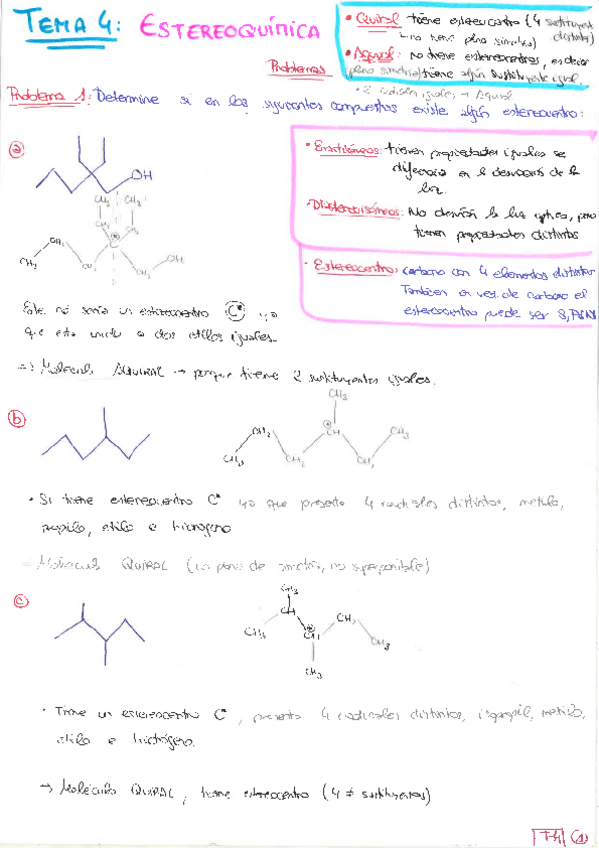 TEMA 4: ESTEREOQUÍMICA
• Quiral tiene estereocentro (4 sustituyent distintos)
no tiene plano simetría)
• Aquiral: no tiene estereocentros, es decir
(plano simetría) tiene algún sustituyente igual.
• 2 radicales iguales → Aquiral
Problemas
Problema 1: Determine si en los siguientes compuestos existe algún estereocentro:
a
OH
CH3 CH3
CH2 CH2
CH2 C OH
CH3 CH2 CH2
• Enantiómeros: tienen propiedades iguales se
diferencia en la desviación de la
luz.
• Diastereoisómeros: No desvían la luz óptica, pero
tienen propiedades distintas
• Estereocentro: carbono con 4 elementos distintos
También en vez de carbono el
estereocentro puede ser S, P
Este no sería un estereocentro C* ya
que esta unido a dos etilos iguales.
=> Molécula AQUIRAL → porque tiene 2 sustituyentes iguales.
b
CH3
CH2 CH CH3
CH3 CH2 CH2
• Si tiene estereocentro C* ya que presenta 4 radicales distintos, metilo,
propilo, etilo e hidrógeno
→ Molécula QUIRAL (no plano de simetría, no superponible)
c
CH3
CH CH2
CH3 CH CH3
CH3
• Tiene un estereocentro C*, presenta 4 radicales distintos, isopropil, metilo,
etilo e hidrógeno.
→ Molécula QUIRAL, tiene estereocentro (4 ≠ sustituyentes)
T-4 1